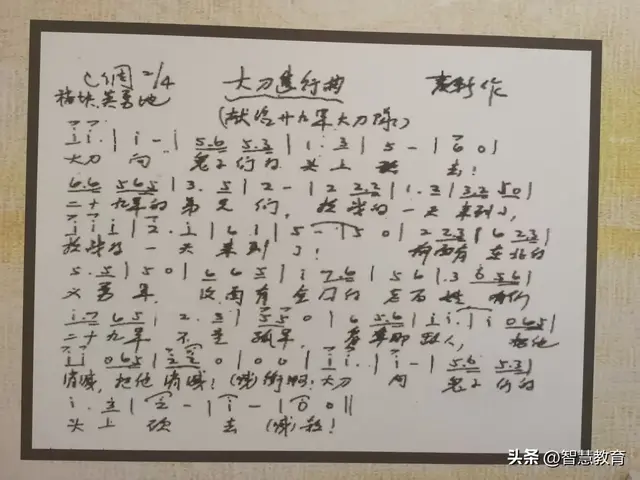 C调 2/4 大刀進行曲 麦新作
英勇地
(献给廿九军大刀队)
i i. | i - i | 5.6 5.3 | 1. 3 | 5 - | 6 0 |
大刀 向 鬼子们的 头上 去!
6.6 5 6 5 | 3. 5 | 2 - | 2 2.3 | 1. 3 | 3.2 5 0 |
二十九军的弟兄们, 抗战的一天来到了,
i i i | 2. i | 6 1 | 5 | 5 0 | 2 2.3 | 6 2.3 |
抗战的一天来到了! 前面有 东北的
5. 5 | 5 0 | 6 6 5 | i 7.6 | 5 6 | .3 6 5 6 |
义勇军, 面有全国的老百姓,
i.7 6 5 | 2. 3 | 5 5 0 | 6 5.6 | i i. | i 0 6 5 |
二十九军不是孤军, 看准那敌人, 把他
i i 0 6 5 | 2 2 0 | 0 0 | i i. | i - | 5.6 5.3 |
消灭, 把他消灭! (喊)冲啊! 大刀 向 鬼子们的
i . 3 | 2 - | i - | 0 0 ||
头上 砍 去 (喊)杀!
头条 @智慧教育